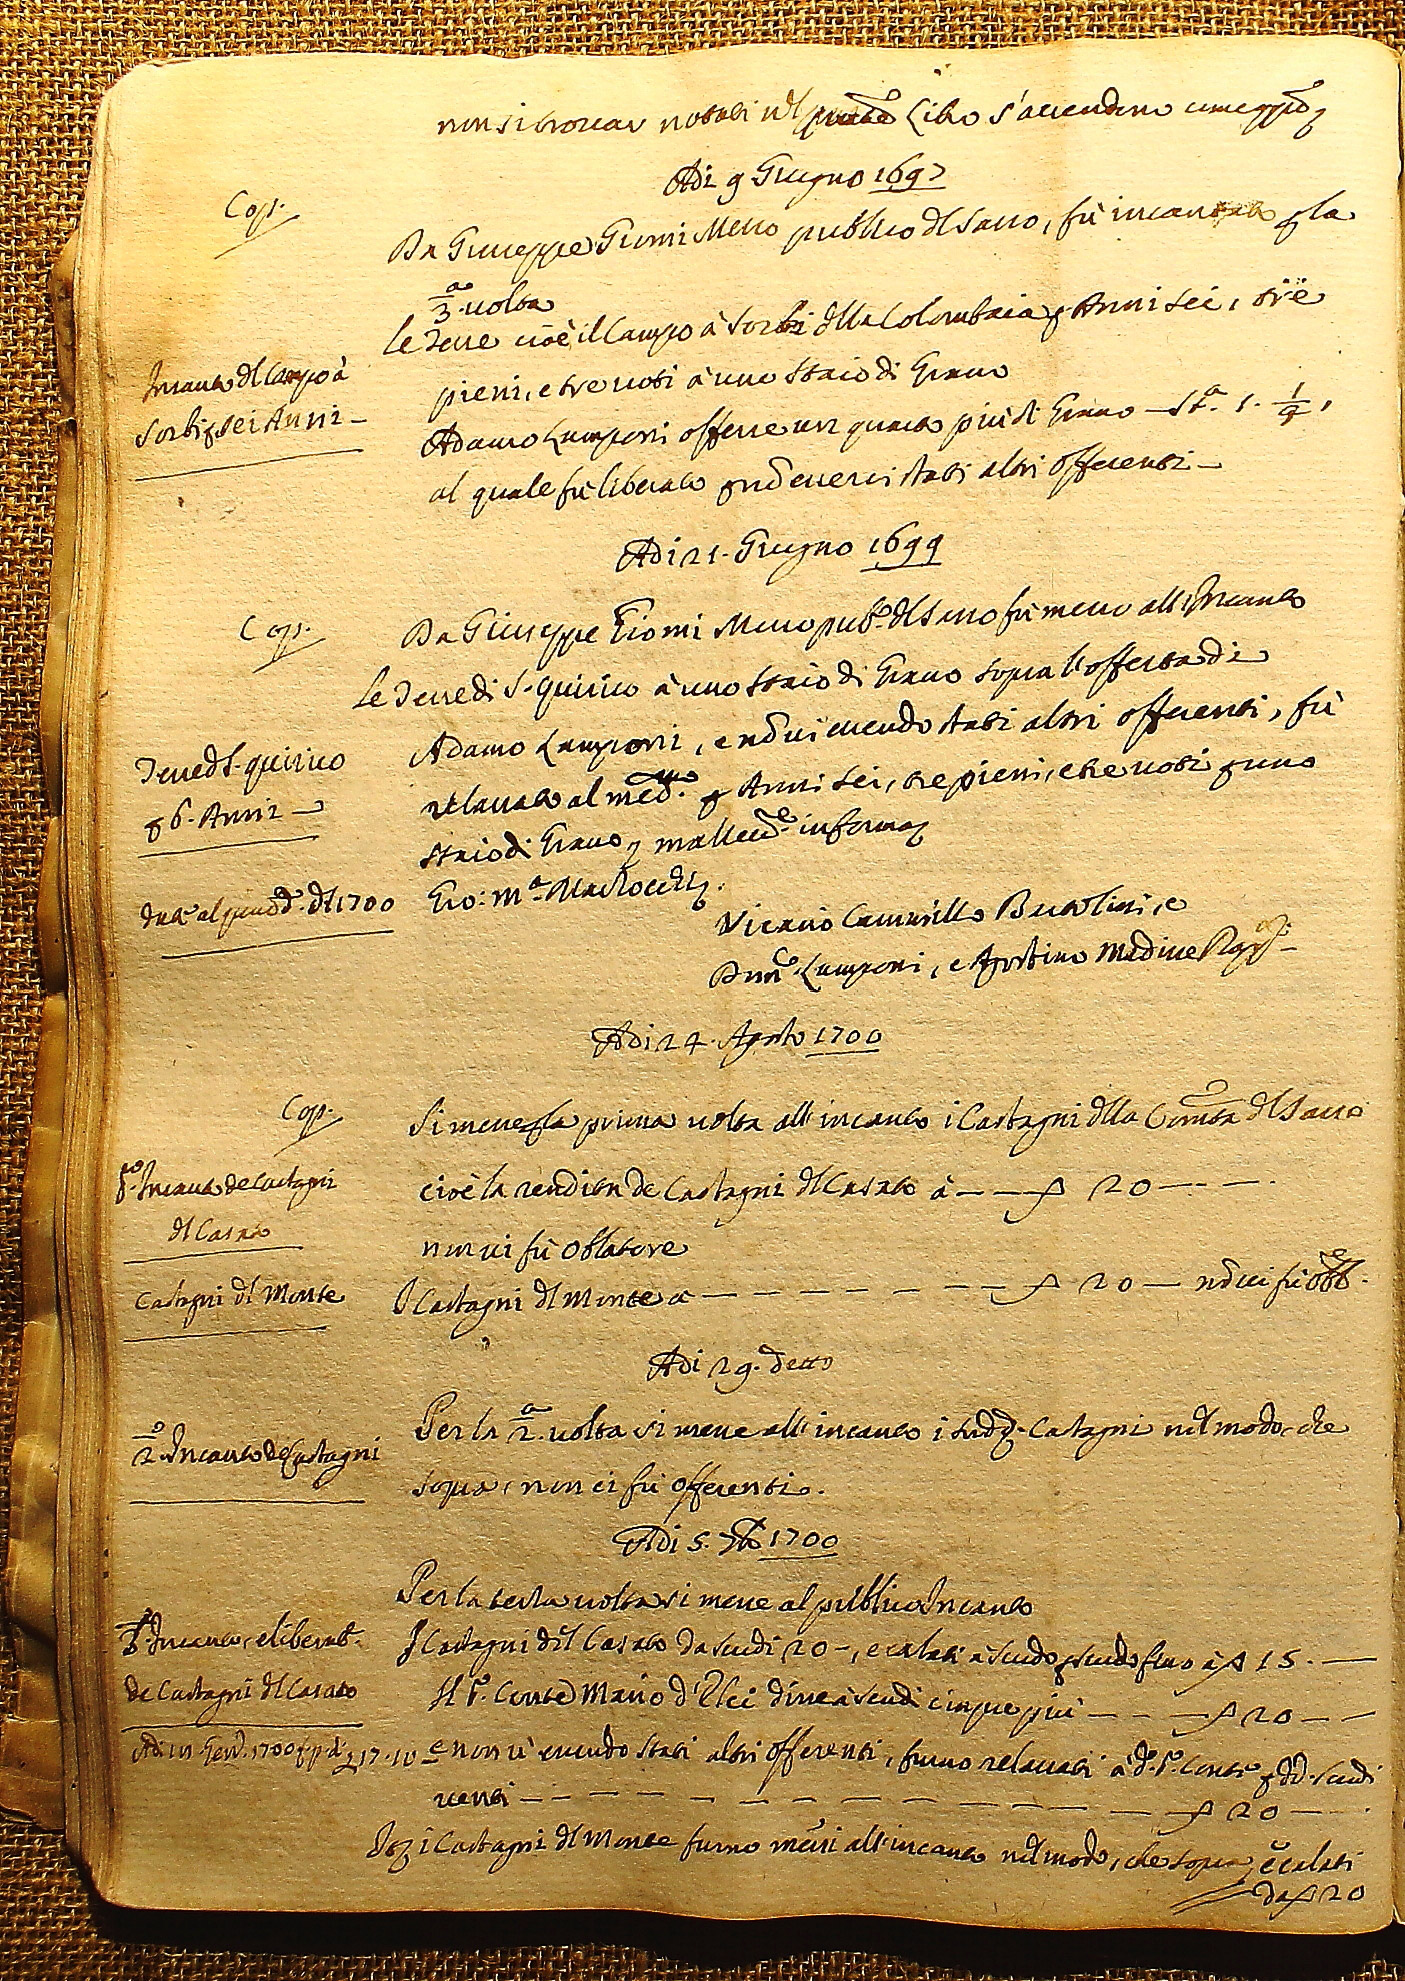 non si trovar notati nel Libro s'accendono
Adi 9 Giugno 1697
Cop.
Da Giuseppe Giomi Messo publico del Sasso, fù incantato p la
3.a volta
le Terre cioè il Campo à Sorbi della Colombaia p Anni sei, tre
Incanto del Campo à
Sorbi p sei Anni —
pieni, e tre voti à uno Staio di Grano
Adamo Lamponi offerse un quarto più di Grano — St.a 1. 1/4,
al quale fù liberato p nō esserci stati altri offerenti —
Adi 21. Giugno 1699
Cop.
Da Giuseppe Giomi Messo pub.o del Sasso fù messo all'Incanto
le Terre di S. Quirico à uno Staio di Grano sopra l'offerta di
Terre d S. Quirico
p 6. Anni —
Adamo Lamponi, e nō vi essendo stati altri offerenti, fù
relassato al med.mo p Anni sei, tre pieni, e tre voti p uno
Staio di Grano, in forma
al 1700
Gio: M.a
Vicario Camarillo Bartolini, e
Dom.o Lamponi, e Agostino
Adi 24. Agosto 1700
Cop.
Si messe p la prima volta all'incanto i Castagni della Comtà del Sasso
p.o Incanto de Castagni
del Casato
cioè la rendita de Castagni del Casato à — — 20 — —
non vi fù Oblatore
Castagni del Monte
I Castagni del Monte à — — — — — — — 20 — nō vi fù Obl.e
Adi 29. detto
2.o Incanto de Castagni
Per la 2.a volta si messe all'incanto i sud.i Castagni nel modo, che
sopra, non ci fù offerenti.
Adi 5. 7bre 1700
Per la terza volta si messe al publico Incanto
3.o Incanto, e liberat.
de Castagni del Casato
I Castagni del Casato da scudi 20 —, e calati à scudo p scudo fino à 15. —
Il S.r Conte Mario d'Elci disse à scudi cinque più — — — 20 — —
e non vi essendo stati altri offerenti, furno relassati à d.o S.r Conte p d.i scudi
venti — — — — — — — — — — 20 — —
I Castagni del Monte furno messi all'incanto nel modo, che sopra, e calati
da 20